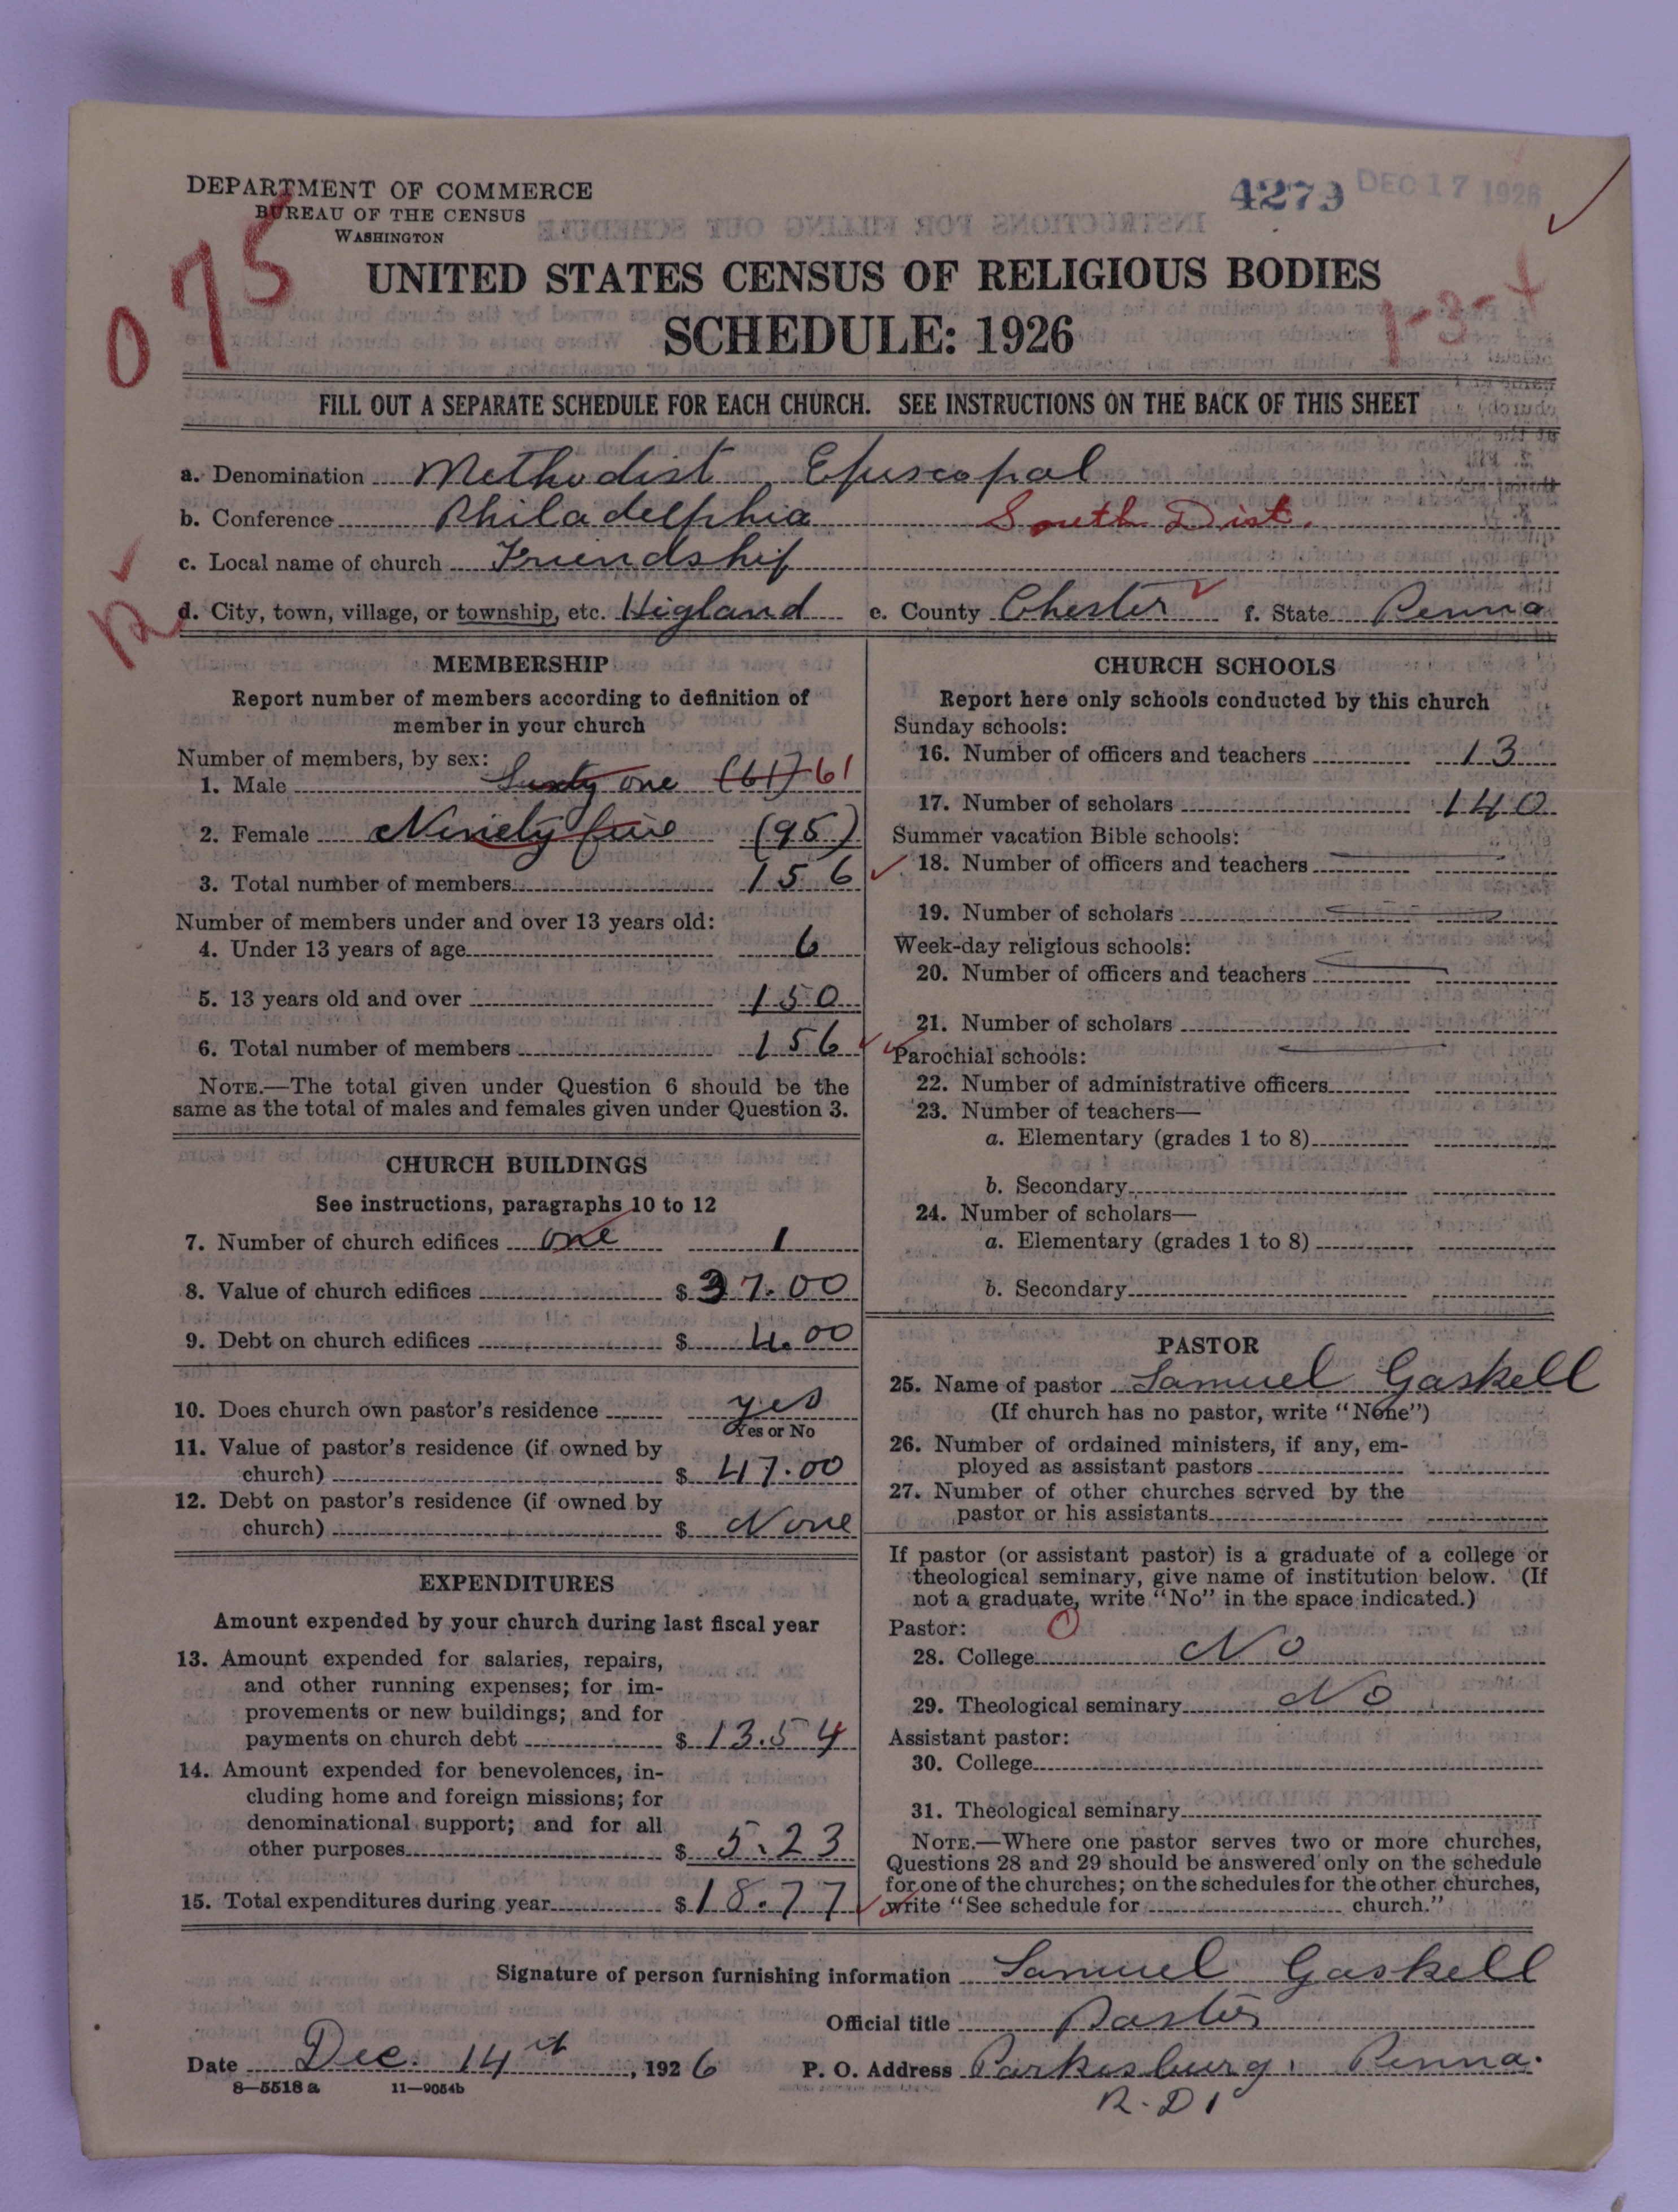 DEPARTMENT OF COMMERCE
BUREAU OF THE CENSUS
WASHINGTON
4279 DEC 17 1926
075
UNITED STATES CENSUS OF RELIGIOUS BODIES
SCHEDULE: 1926
1-3-4
FILL OUT A SEPARATE SCHEDULE FOR EACH CHURCH. SEE INSTRUCTIONS ON THE BACK OF THIS SHEET
a. Denomination Methodist Episcopal
b. Conference Philadelphia South Dist.
c. Local name of church Friendship
R
d. City, town, village, or township, etc. Higland e. County Chester f. State Penna
MEMBERSHIP
Report number of members according to definition of
member in your church
Number of members, by sex:
1. Male Sixty one (61) 61
2. Female Ninety five (95)
3. Total number of members 156
Number of members under and over 13 years old:
4. Under 13 years of age 6
5. 13 years old and over 150
6. Total number of members 156
NOTE.—The total given under Question 6 should be the
same as the total of males and females given under Question 3.
CHURCH BUILDINGS
See instructions, paragraphs 10 to 12
7. Number of church edifices one 1
8. Value of church edifices $ 37.00
9. Debt on church edifices $ 4.00
10. Does church own pastor's residence yes
Yes or No
11. Value of pastor's residence (if owned by
church) $ 47.00
12. Debt on pastor's residence (if owned by
church) $ None
EXPENDITURES
Amount expended by your church during last fiscal year
13. Amount expended for salaries, repairs,
and other running expenses; for im-
provements or new buildings; and for
payments on church debt $ 13.54
14. Amount expended for benevolences, in-
cluding home and foreign missions; for
denominational support; and for all
other purposes $ 5.23
15. Total expenditures during year $ 18.77
CHURCH SCHOOLS
Report here only schools conducted by this church
Sunday schools:
16. Number of officers and teachers 13
17. Number of scholars 140
Summer vacation Bible schools:
18. Number of officers and teachers
19. Number of scholars
Week-day religious schools:
20. Number of officers and teachers
21. Number of scholars
Parochial schools:
22. Number of administrative officers
23. Number of teachers—
a. Elementary (grades 1 to 8)
b. Secondary
24. Number of scholars—
a. Elementary (grades 1 to 8)
b. Secondary
PASTOR
25. Name of pastor Samuel Gaskell
(If church has no pastor, write "None")
26. Number of ordained ministers, if any, em-
ployed as assistant pastors
27. Number of other churches served by the
pastor or his assistants
If pastor (or assistant pastor) is a graduate of a college or
theological seminary, give name of institution below. (If
not a graduate, write "No" in the space indicated.)
Pastor: 0
28. College No
29. Theological seminary No
Assistant pastor:
30. College
31. Theological seminary
NOTE.—Where one pastor serves two or more churches,
Questions 28 and 29 should be answered only on the schedule
for one of the churches; on the schedules for the other churches,
write "See schedule for church."
Signature of person furnishing information Samuel Gaskell
Official title Pastor
Date Dec. 14th, 1926 P. O. Address Parkesburg, Penna.
8—5518a 11—9054b
R. D 1